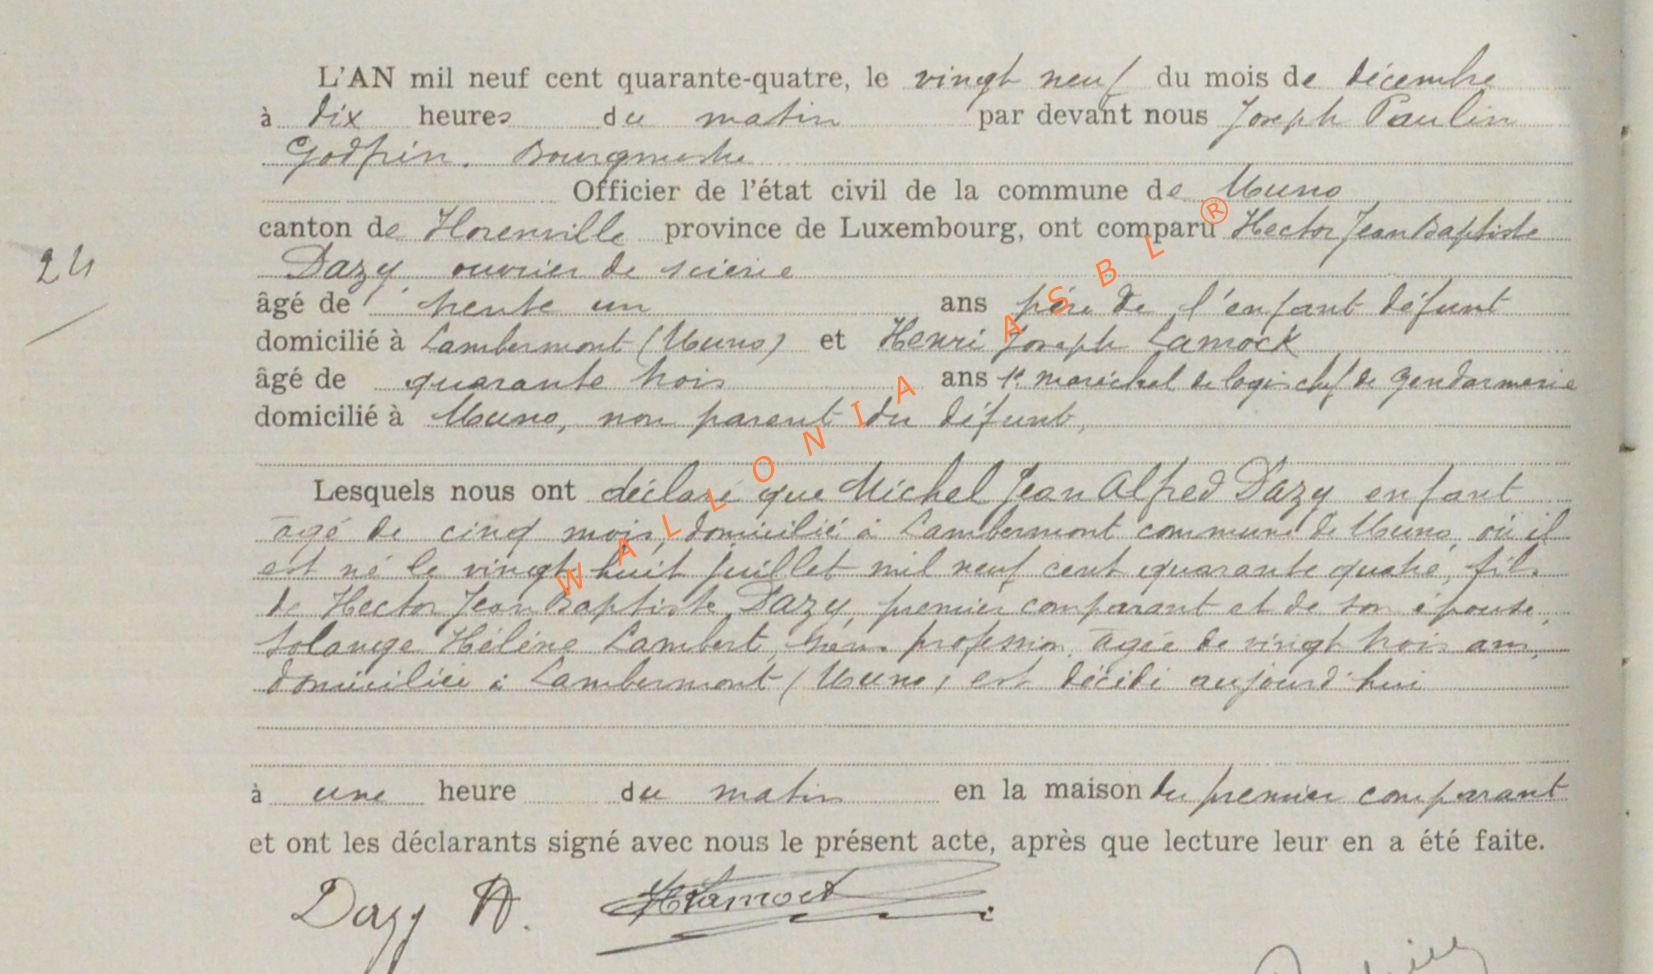 L'AN mil neuf cent quarante-quatre, le vingt neuf du mois de décembre
à dix heures du matin par devant nous Joseph Paulin
Godfrin. Bourgmestre
Officier de l'état civil de la commune de Muno
24
canton de Florenville province de Luxembourg, ont comparu Hector Jean Baptiste
Dazy, ouvrier de scierie
âgé de trente un ans père de l'enfant défunt
domicilié à Lambermont (Muno) et Henri Joseph Lamock
âgé de quarante trois ans 1r maréchal de logis chef de gendarmerie
domicilié à Muno, non parent du défunt,
Lesquels nous ont déclaré que Michel Jean Alfred Dazy enfant
âgé de cinq mois, domicilié à Lambermont commune de Muno, où il
est né le vingt huit juillet mil neuf cent quarante quatre, fils
de Hector Jean Baptiste Dazy, premier comparant et de son épouse,
Solange Hélène Lambert, sans profession, âgée de vingt trois ans,
domiciliée à Lambermont (Muno) est décédé aujourd'hui
à une heure du matin en la maison du premier comparant
et ont les déclarants signé avec nous le présent acte, après que lecture leur en a été faite.
Dazy H. HLamock
WALLONIA ASBL ®